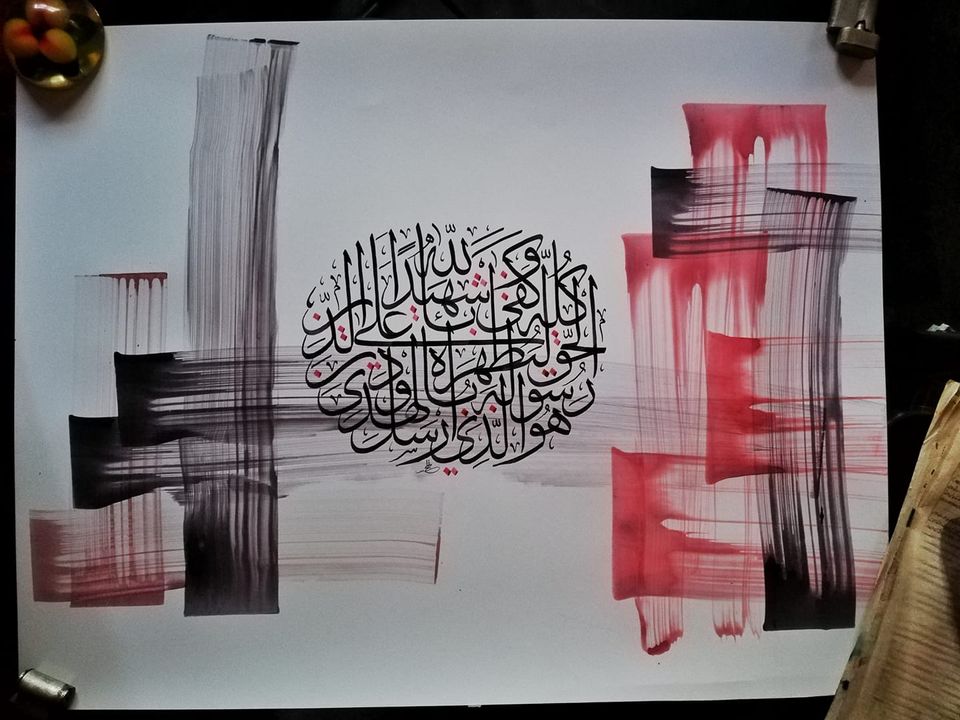 هو الذي ارسل
رسوله بالهدى ودين
الحق ليظهره على الدين
كله وكفى بالله شهيدا